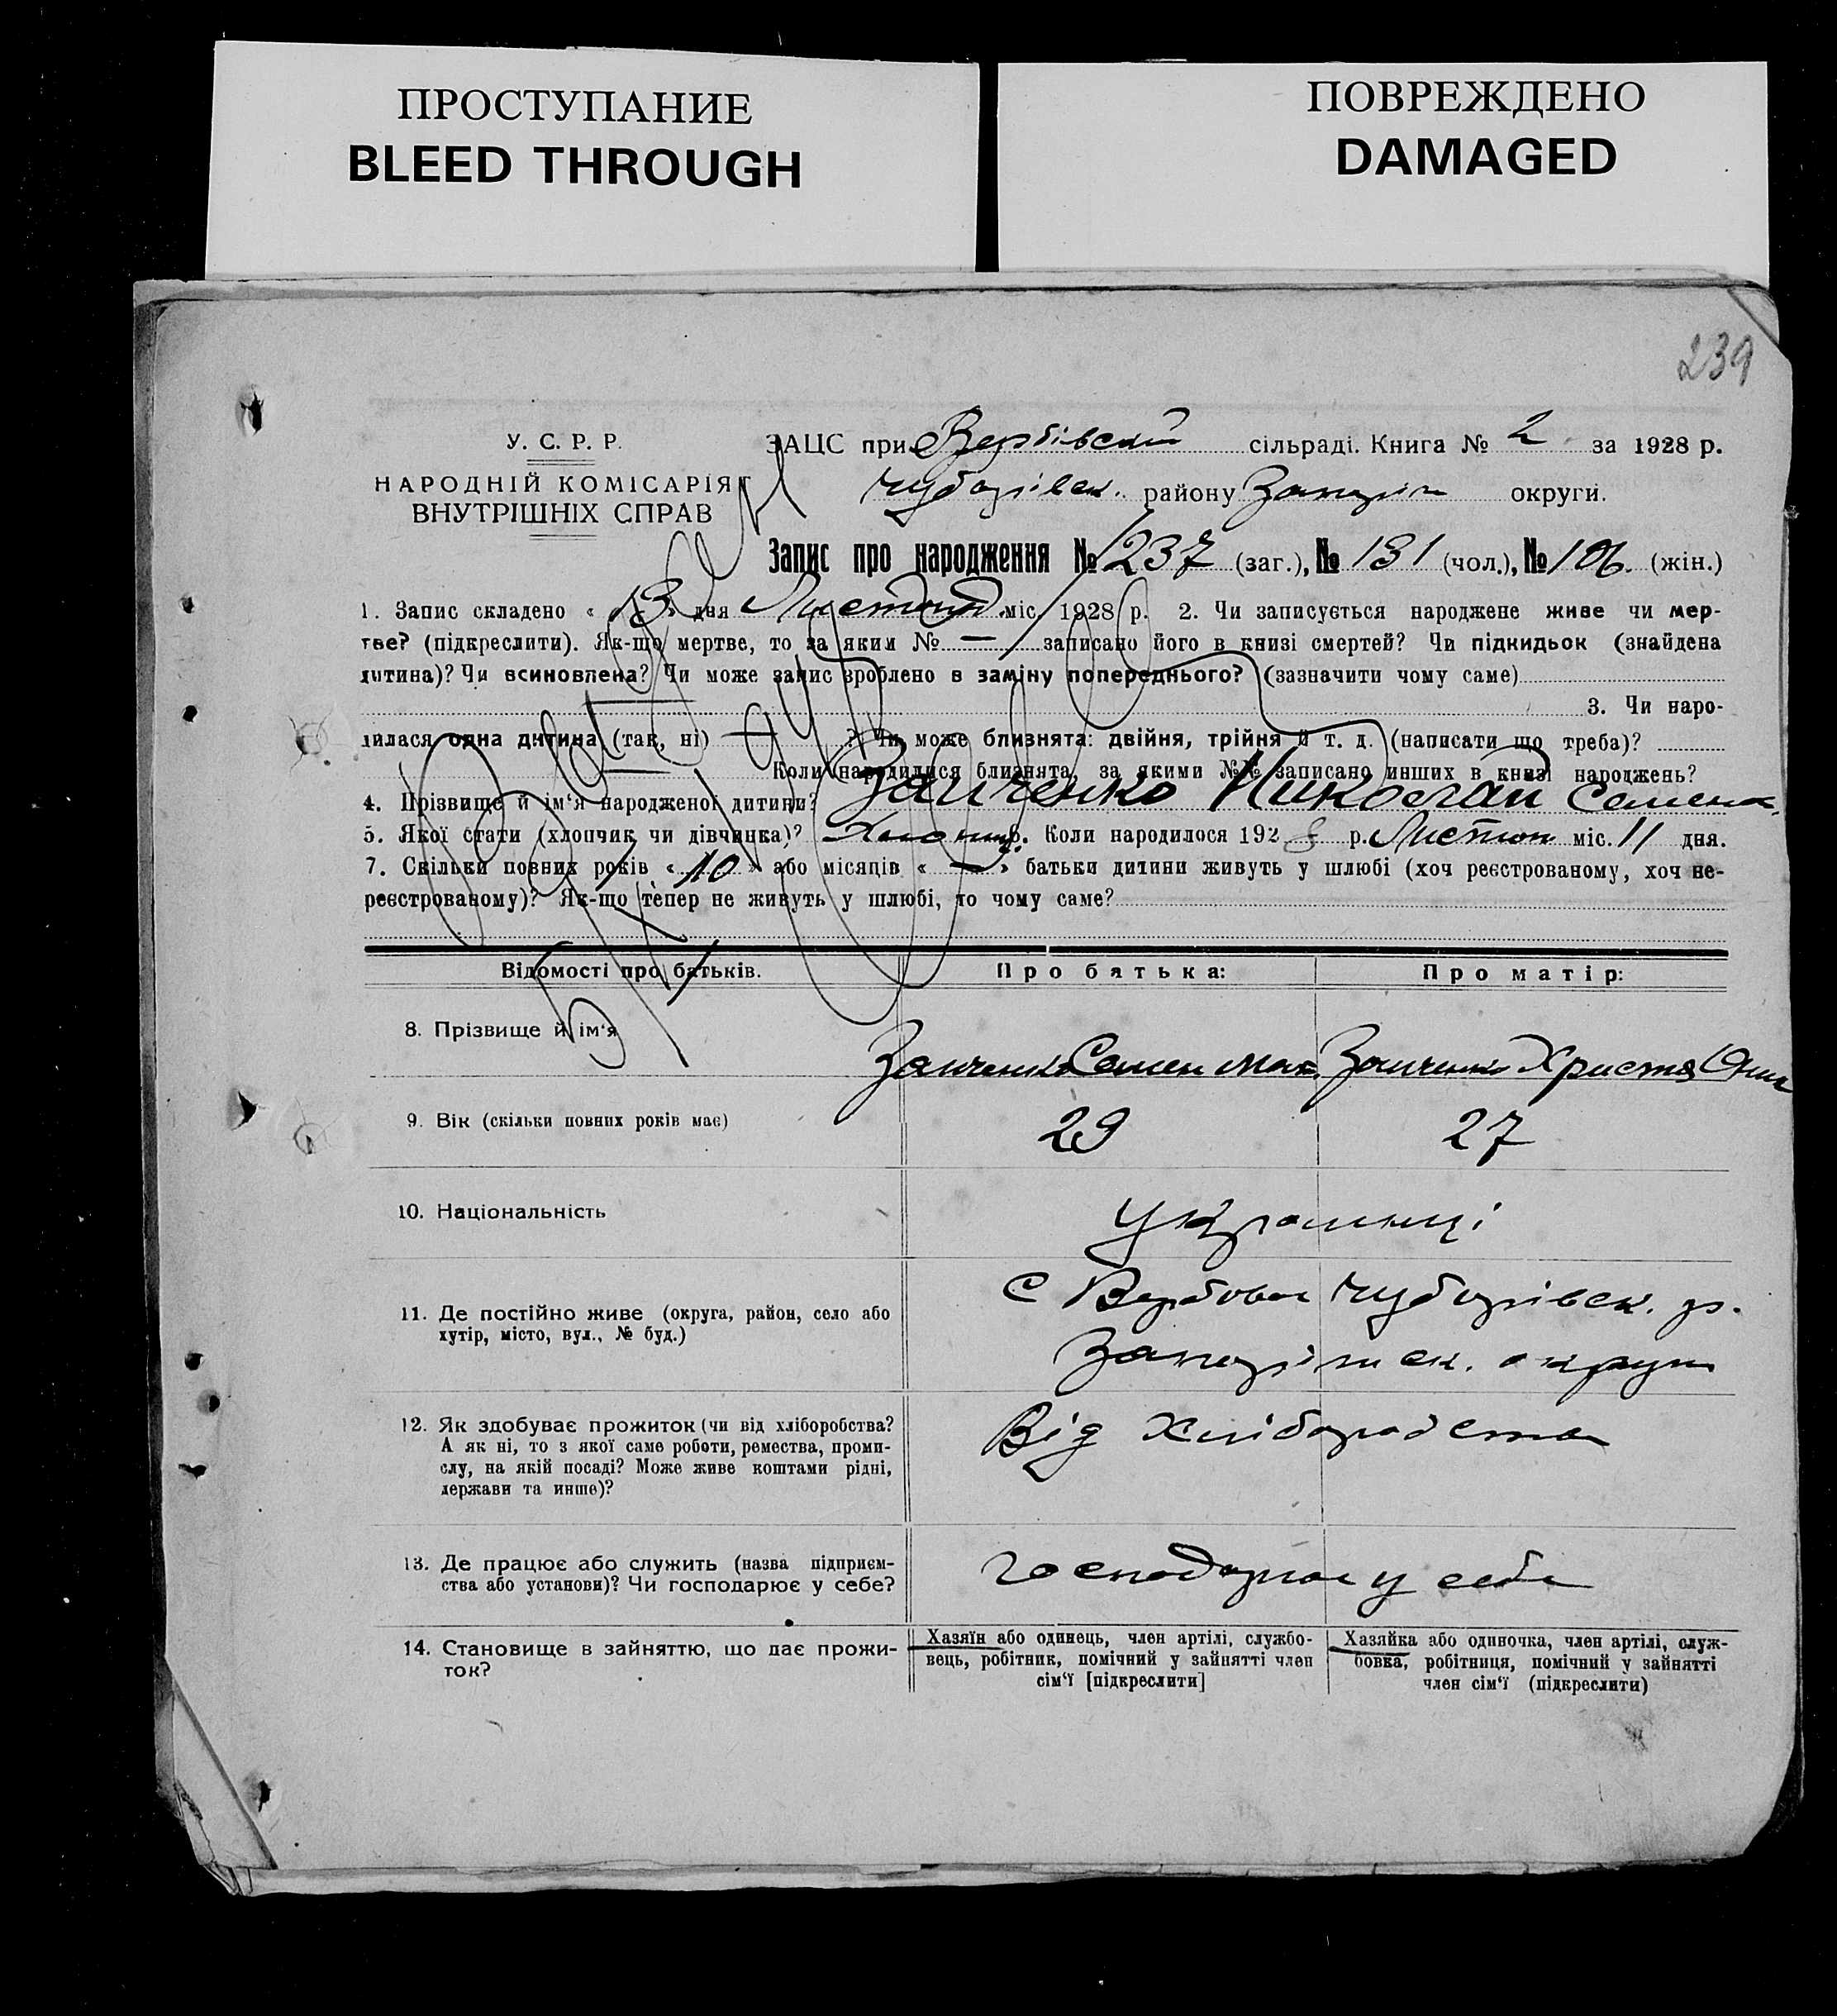 ПРОСТУПАНИЕ
BLEED THROUGH
ПОВРЕЖДЕНО
DAMAGED
239
У. С. Р. Р.
НАРОДНІЙ КОМІСАРІЯТ
ВНУТРІШНІХ СПРАВ
ЗАЦС при Вербівській сільраді. Книга № 2 за 1928 р.
Чубарівськ. району Запоріж округи.
Запис про народження № 237 (заг.), № 131 (чол.), № 106. (жін.)
1. Запис складено « 13 » дня Листопад міс. 1928 р. 2. Чи записується народжене живе чи мер-
тве? (підкреслити). Як-що мертве, то за яким № — записано його в книзі смертей? Чи підкидьок (знайдена
дитина)? Чи всиновлена? Чи може запис зроблено в заміну попереднього? (зазначити чому саме)
3. Чи наро-
дилася одна дитина (так, ні) ? Чи може близнята: двійня, трійня й т. д. (написати що треба)?
Коли народилися близнята, за якими №№ записано инших в книзі народжень?
4. Прізвище й ім'я народженої дитини? Заиченко Николай Семенов.
5. Якої стати (хлопчик чи дівчинка)? Хлопчик 6. Коли народилося 1928 р. Листоп міс. 11 дня.
7. Скільки повних років « 10 » або місяців « — » батьки дитини живуть у шлюбі (хоч реєстрованому, хоч не-
реєстрованому)? Як-що тепер не живуть у шлюбі, то чому саме?
Відомості про батьків. Про батька: Про матір:
8. Прізвище й ім'я
Заиченко Семен Мак. Заиченко Христя
9. Вік (скільки повних років має) 29 27
10. Національність
Украинці
11. Де постійно живе (округа, район, село або
хутір, місто, вул., № буд.)
С Вербове Чубарівськ. р.
Запоріжск. округи
12. Як здобуває прожиток (чи від хліборобства?
А як ні, то з якої саме роботи, ремества, проми-
слу, на якій посаді? Може живе коштами рідні,
держави та инше)?
Від Хліборобства
13. Де працює або служить (назва підприєм-
ства або установи)? Чи господарює у себе?
господарює у себе
14. Становище в зайняттю, що дає прожи-
ток?
Хазяїн або одинець, член артілі, службо-
вець, робітник, помічний у зайнятті член
сім'ї [підкреслити]
Хазяйка або одиночка, член артілі, служ-
бовка, робітниця, помічний у зайнятті
член сім'ї (підкреслити)